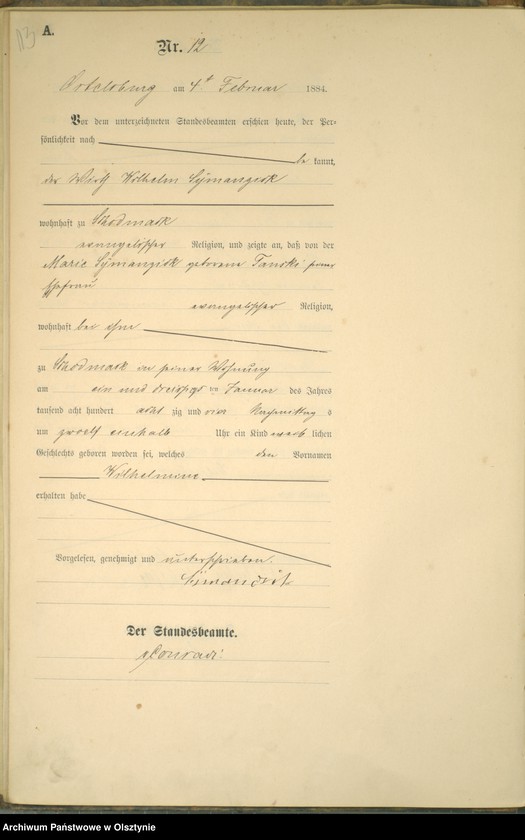 113
A.
Nr. 12
Ortelsburg am 4t Februar 1884.
Vor dem unterzeichneten Standesbeamten erschien heute, der Per-
sönlichkeit nach
be kannt,
der Wirth Wilhelm
wohnhaft zu
evangelischer Religion, und zeigte an, daß von der
Marie geborene Tanski seiner
Ehefrau
evangelischer Religion,
wohnhaft bei ihm
zu in seiner Wohnung
am ein und dreißigs ten Januar des Jahres
tausend acht hundert acht zig und vier Nachmittag s
um zwoelf einhalb Uhr ein Kind weib lichen
Geschlechts geboren worden sei, welches den Vornamen
Wilhelmine
erhalten habe
Vorgelesen, genehmigt und unterschrieben.
Der Standesbeamte.
Conradi
Archiwum Państwowe w Olsztynie